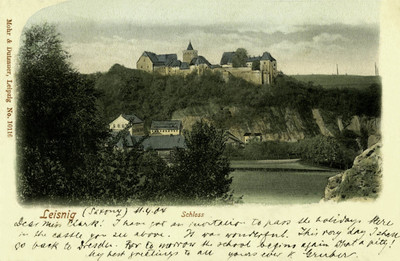 Mohr & Dutzauer, Leipzig No. 10116
Leisnig (Saxony) 11.4.04
Schloss
Dear Miss Clark! I have got an invitation to pass the holidays here
in the castle you see above. It was wonderful. This very day I shall
go back to Dresden. For to morrow the school begins again that a pity!
My best greetings to all yours ever